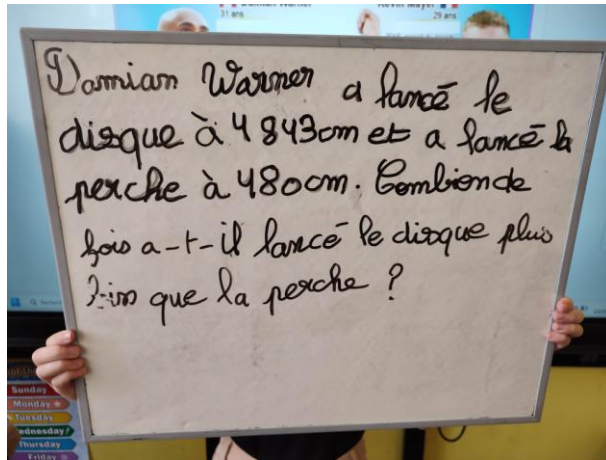 Damian Warner
Kevin Mayer
31 ans
29 ans
Damian Warner a lancé le
disque à 4 843cm et a lancé la
perche à 480cm. Combien de
fois a-t-il lancé le disque plus
loin que la perche ?
Sunday
Monday
Tuesday
Wednesday
Thursday
Friday